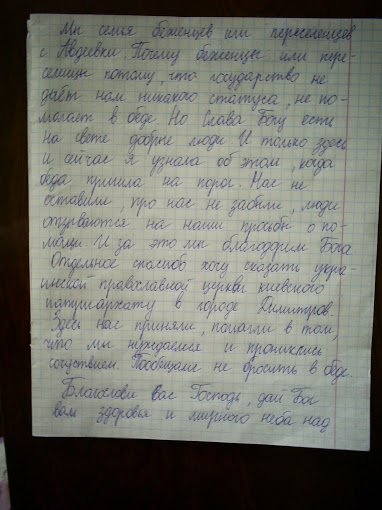 Мы семья беженцев или переселенцев
с Авдеевки. Почему беженцы или пере-
селенцы потому, что государство не
даёт нам никакого статуса, не по-
магает в беде. Но Слава Богу есть
на свете добрые люди. И только здесь
и сейчас я узнала об этом, когда
беда пришла на порог. Нас не
оставили, про нас не забыли, люди
отзываются на наши просьбы о по-
мощи. И за это мы благодарим Бога.
Отдельное спасибо хочу сказать укра-
инской православной церкви киевского
патриархату в городе Димитров.
Здесь нас приняли, помагли в том,
что мы нуждаемся и прониклись
сочуствием. Пообещали не бросить в беде.
Благослови Вас Господь, дай Бог
вам здоровья и мирного неба над